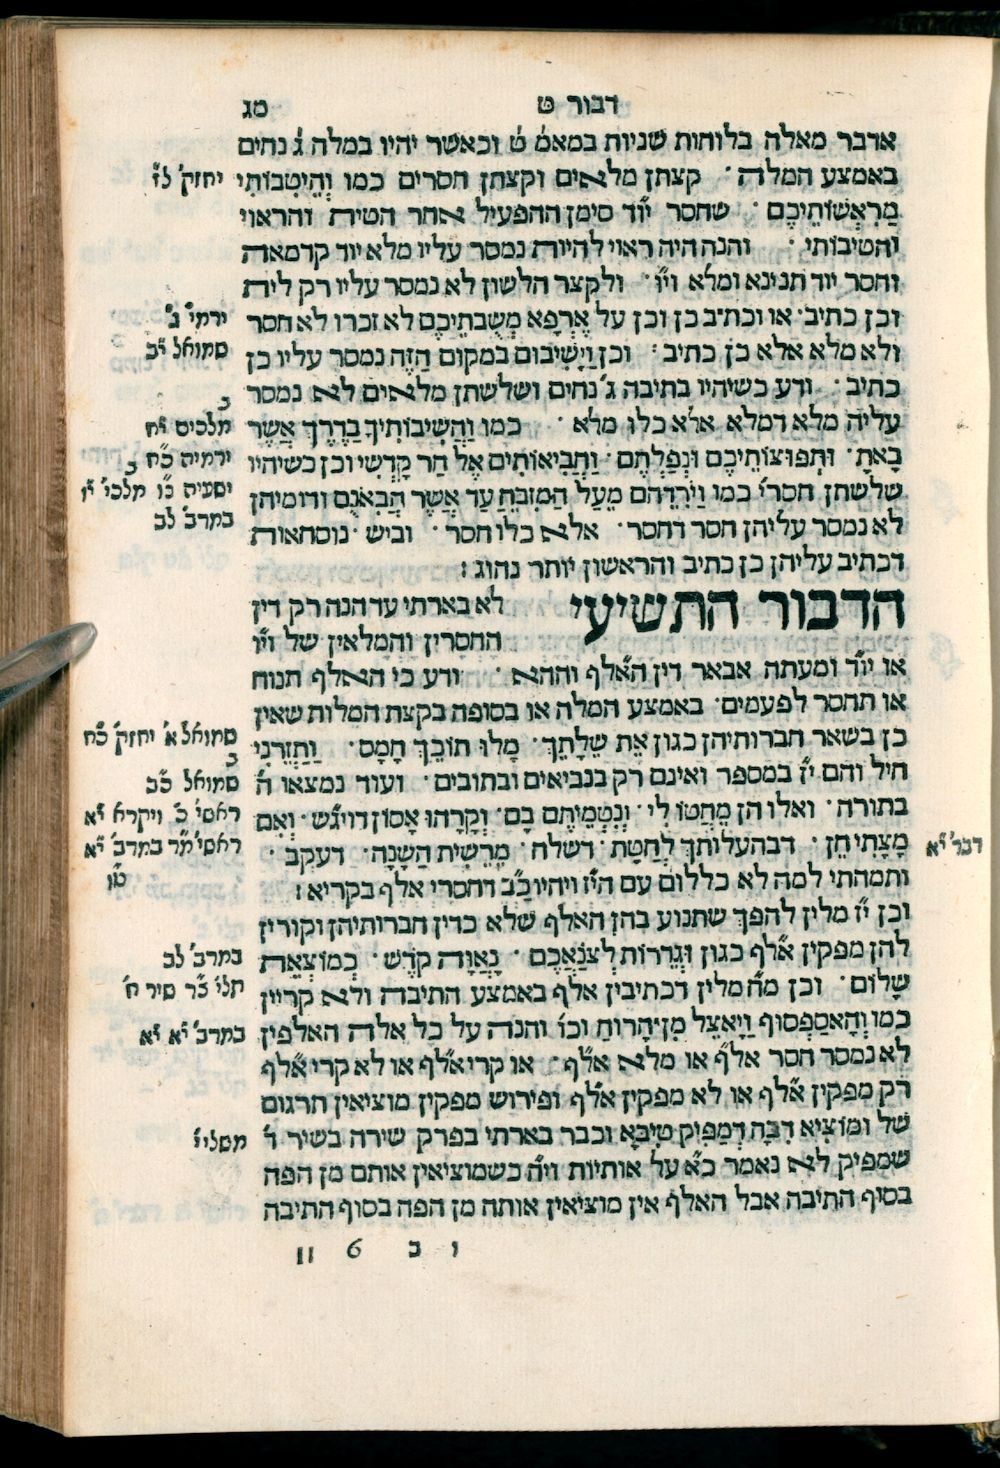 דבור ט מג
אדבר מאלה בלוחות שניות במאמ׳ ט׳ וכאשר יהיו במלה ג׳ נחים
באמצע המלה׃ קצתן מלאים וקצתן חסרים כמו וְהֵיטִבוֹתִי יחזק׳ לו
מַרְאֲשׁוֹתֵיכֶם · שחסר יו״ד סימן ההפעיל אחר הטית והראוי
והטיבותי · והנה היה ראוי להיות נמסר עליו מלא יוד קדמאה
וחסר יוד תנינא ומלא וי״ו · ולקצר הלשון לא נמסר עליו רק לית
וכן כתיב · או וכת״ב כן וכן על אֶרְפָּא מְשֻׁבֹתֵיכֶם לא זכרו לא חסר ירמי׳ ג׳
ולא מלא אלא כן כתיב׃ וכן וַיְשִׁיבוּם במקום הַזֶה נמסר עליו כן שמואל י״ב
כתיב · ודע כשיהיו בתיבה ג׳ נחים ושלשתן מלאים לא נמסר
עליה מלא דמלא אלא כלו מלא · כמו וַהֲשִׁיבוֹתִיךָ בַדֶרֶךְ אֲשֶׁר מלכים י״ח ב
בָאתָ · וּתְפוּצוֹתִיכֶם וּנְפַלְתֶּם · וַהֲבִיאוֹתִים אֶל הַר קָדְשִׁי וכן כשיהיו ירמיה כ״ה
שלשתן חסרי׳ כמו וַיֹרִדֻהם מֵעַל הַמִזְבֵּחַ עַד אֲשֶׁר הֲבִאֹנֻם ודומיהן ישעיה נ״ו מלכי׳ י״ו ב
לא נמסר עליהן חסר דחסר · אלא כלו חסר · וביש · נוסחאות במדב׳ לב
דכתיב עליהן כן כתיב והראשון יותר נהוג׃
הדבור התשיעי לא בארתי עד הנה רק דין
החסרין והמלאין של וי״ו
או יו״ד ומעתה אבאר דין האלף וההא · ודע כי האלף תנוח
או תחסר לפעמים · באמצע המלה או בסופה בקצת המלות שאין
כן בשאר חברותיהן כגון אֶת שֵׁלָתֵךְ · מָלוּ תוֹכֵךְ חָמָס · וַתַּזְרֵנִי שמואל א׳ יחזק׳ כ״ח
חיל והם י״ז במספר ואינם רק בנביאים ובתובים · ועוד נמצאו ה׳ שמואל כ״ב ב
בתורה · ואלו הן מֵחֲטוֹ לִי · וְנִטְמֵיתֶם בָּם · וְקָרָהוּ אָסוֹן דויגש · וְאִם ראשי׳ כ׳ ויקרא י״א
מָצָתִי חֵן · דבהעלותך לְחַטָת · דשלח · מֵרֵשִׁית הַשָׁנָה · דעקב · ראשי׳ מ״ד במדב׳ י״א דבר׳ י״א
ותמהתי למה לא כללום עם הי״ז ויהיו כ״ב דחסרי אלף בקריא׃ ט״ו
וכן י״ז מלין להפך שתנוע בהן האלף שלא כדין חברותיהן וקורין
להן מפקין אלף כגון וּגְדֵרוֹת לְצֹנַאֲכֶם · נָאֲוָה קֹדֶשׁ · כְמוֹצְאֵת במדב׳ לב
שָׁלוֹם · וכן מ״ח מלין דכתיבין אלף באמצע התיבה ולא קריין תלי׳ צ״ד שיר ח׳
כמו וְהָאסַפְסוּף וַיָאצֶל מִן הָרוּחַ וכו׳ והנה על כל אלה האלפין במדב׳ י״א י״א
לא נמסר חסר אלף או מלא אלף · או קרי אלף או לא קרי אלף
רק מפקין אלף או לא מפקין אלף ופירוש מפקין מוציאין תרגום
של וּמוֹצִיא דִבָּה דְמַפִּיק טִיבָּא וכבר בארתי בפרק שירה בשיר ד׳ משלי י׳
שמפיק לא נאמר כ״א על אותיות וי״ה כשמוציאין אותם מן הפה
בסוף התיבה אבל האלף אין מוציאין אותה מן הפה בסוף התיבה
ו ב 6 II